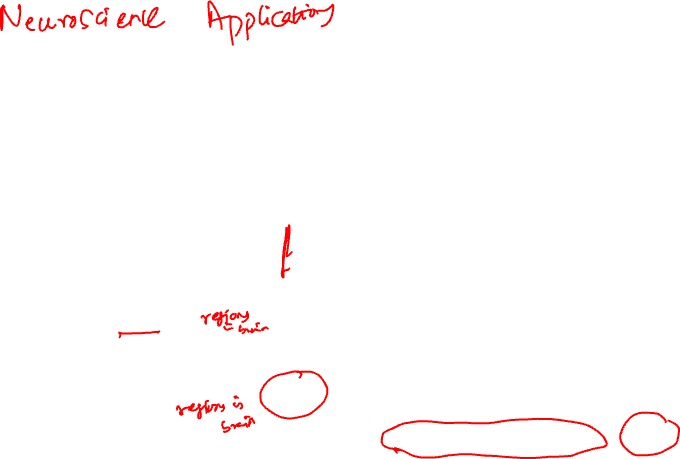 Neuroscience Applications
regions
in brain
regions in
brain